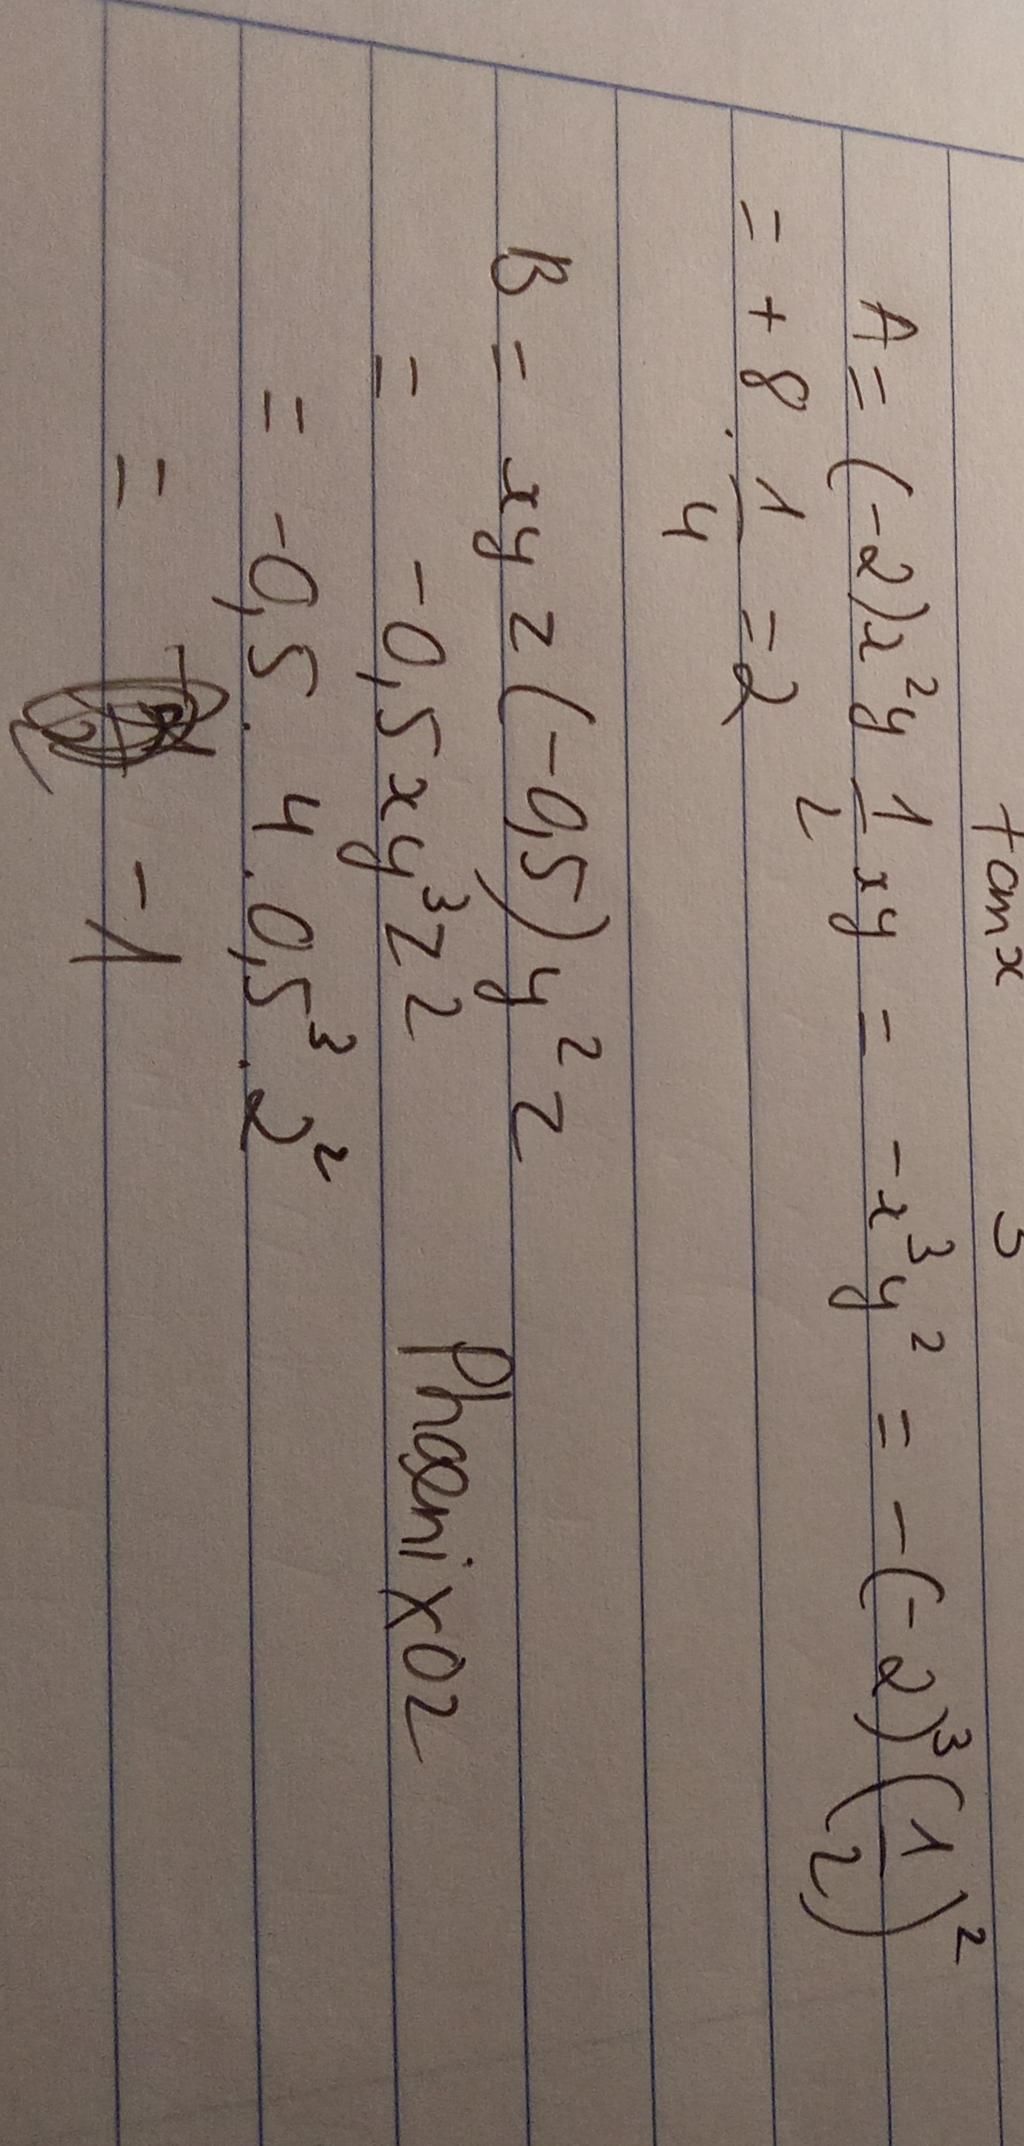 tanx 3
A = (-2)x²y 1/2 xy = -x³y² = -(-2)³(1/2)²
= + 8 . 1/4 = 2
B = xyz(-0,5)y²z
= -0,5xy³z²
= -0,5 . 4 . 0,5³ . 2²
= -1
Phoenix02